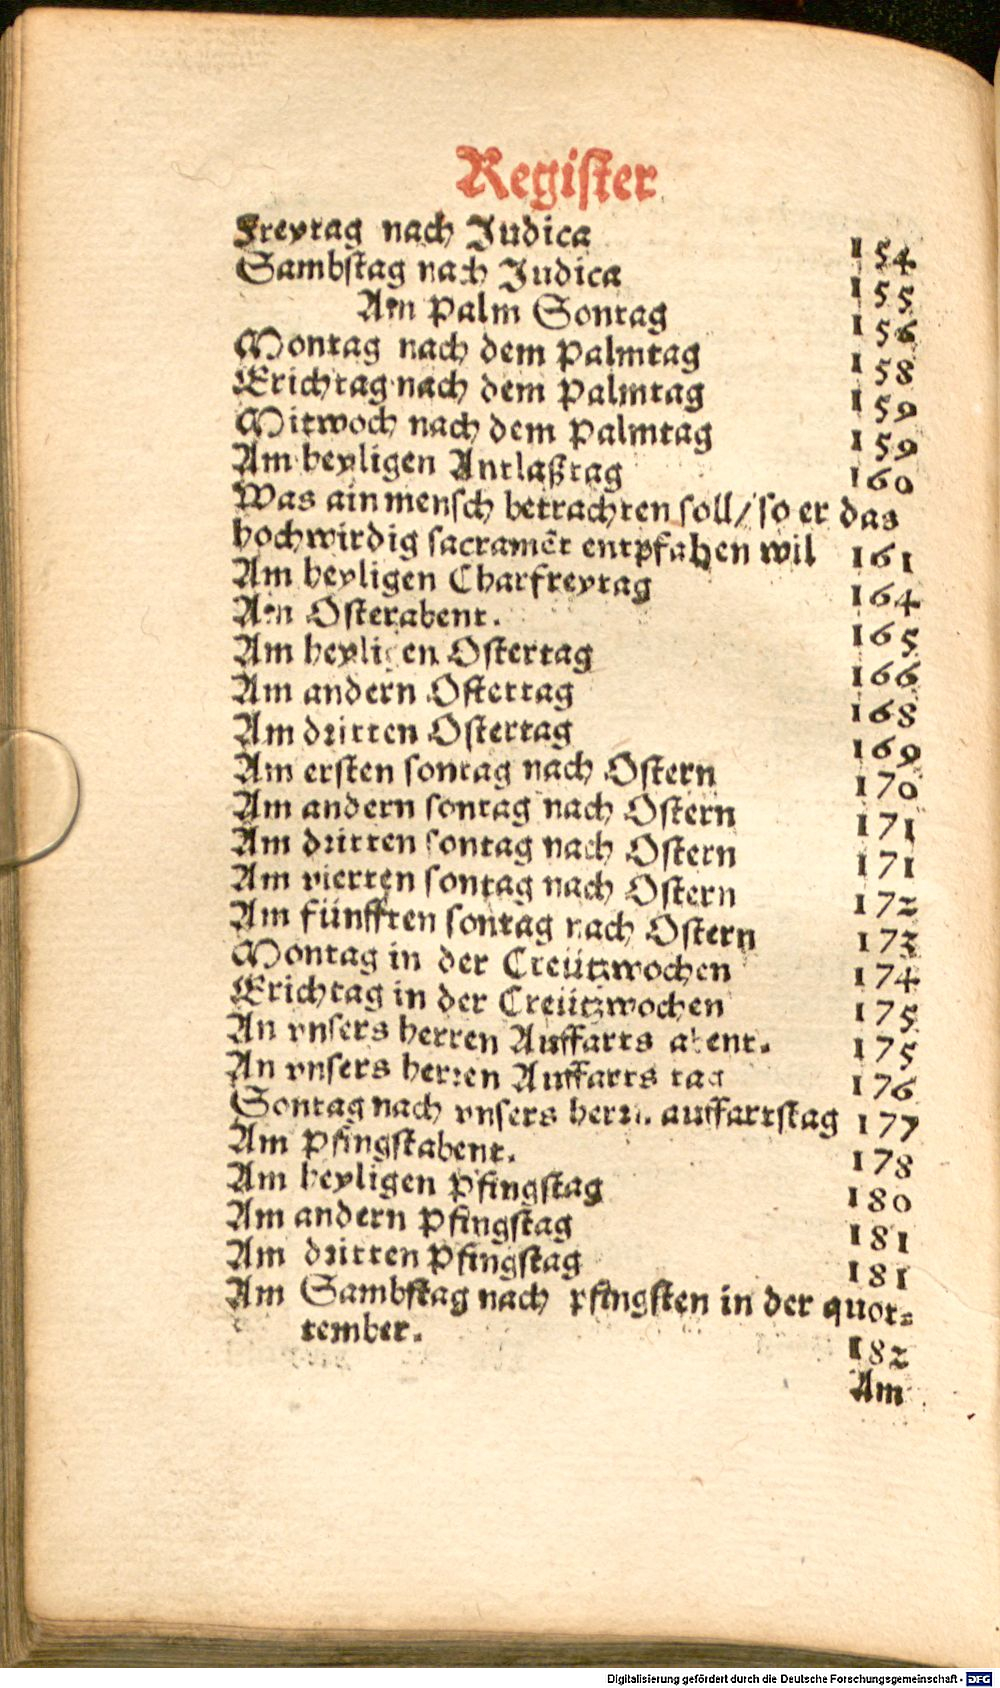 Register
Freytag nach Judica 154
Sambstag nach Judica 155
Am Palm Sontag 156
Montag nach dem Palmtag 158
Erichtag nach dem Palmtag 159
Mitwoch nach dem Palmtag 159
Am heyligen Antlaßtag 160
Was ain mensch betrachten soll/ so er das
hochwirdig sacramẽt entpfahen wil 161
Am heyligen Charfreytag 164
Am Osterabent. 165
Am heyligen Ostertag 166
Am andern Ostertag 168
Am dritten Ostertag 169
Am ersten sontag nach Ostern 170
Am andern sontag nach Ostern 171
Am dritten sontag nach Ostern 171
Am vierten sontag nach Ostern 172
Am fünfften sontag nach Ostern 173
Montag in der Creützwochen 174
Erichtag in der Creützwochen 175
An vnsers herren Auffarts abent. 175
An vnsers herren Auffarts tag 176
Sontag nach vnsers herrn. auffartstag 177
Am Pfingstabent. 178
Am heyligen Pfingstag 180
Am andern Pfingstag 181
Am dritten Pfingstag 181
Am Sambstag nach pfingsten in der quot⸗
tember. 182
Am
Digitalisierung gefördert durch die Deutsche Forschungsgemeinschaft - DFG